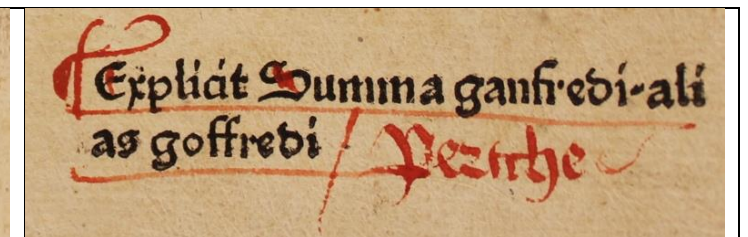 Explicit Summa ganfredi-ali
as goffredi